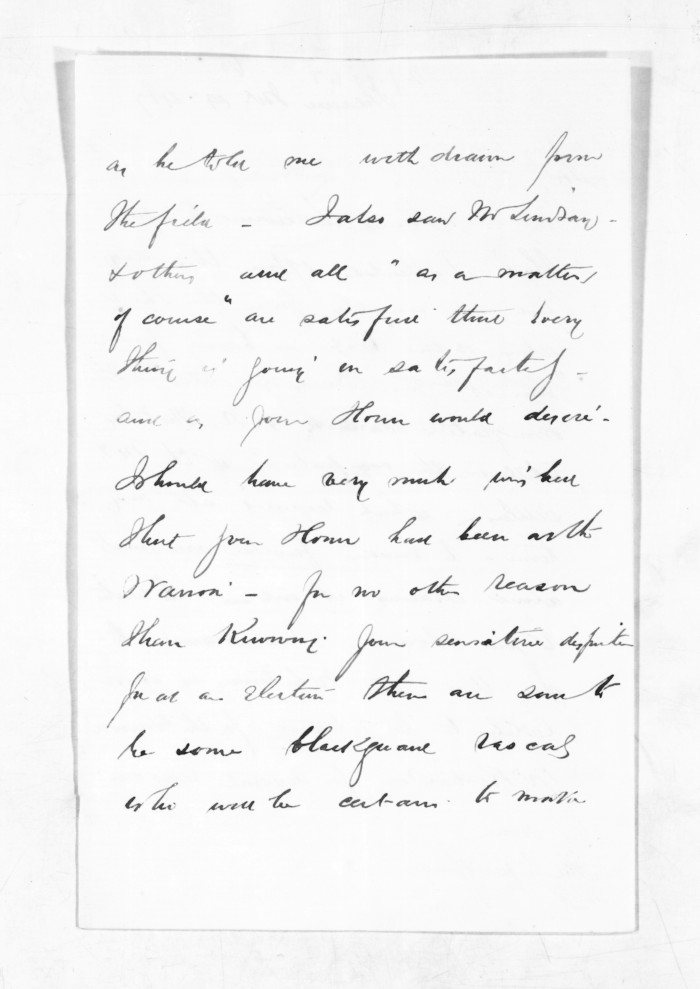 as he told me withdrawn from
the field - I also saw Mr Lindsay -
& others and all "as a matter
of course" are satisfied that every
thing is going on satisfactly -
and as your Honor would desire -
I should have very much wished
that your Honor had been at the
Wairoa - for no other reason
than Knowing your sensitive
for at an election there are sure to
be some blackguard rascals
who will be certain to make